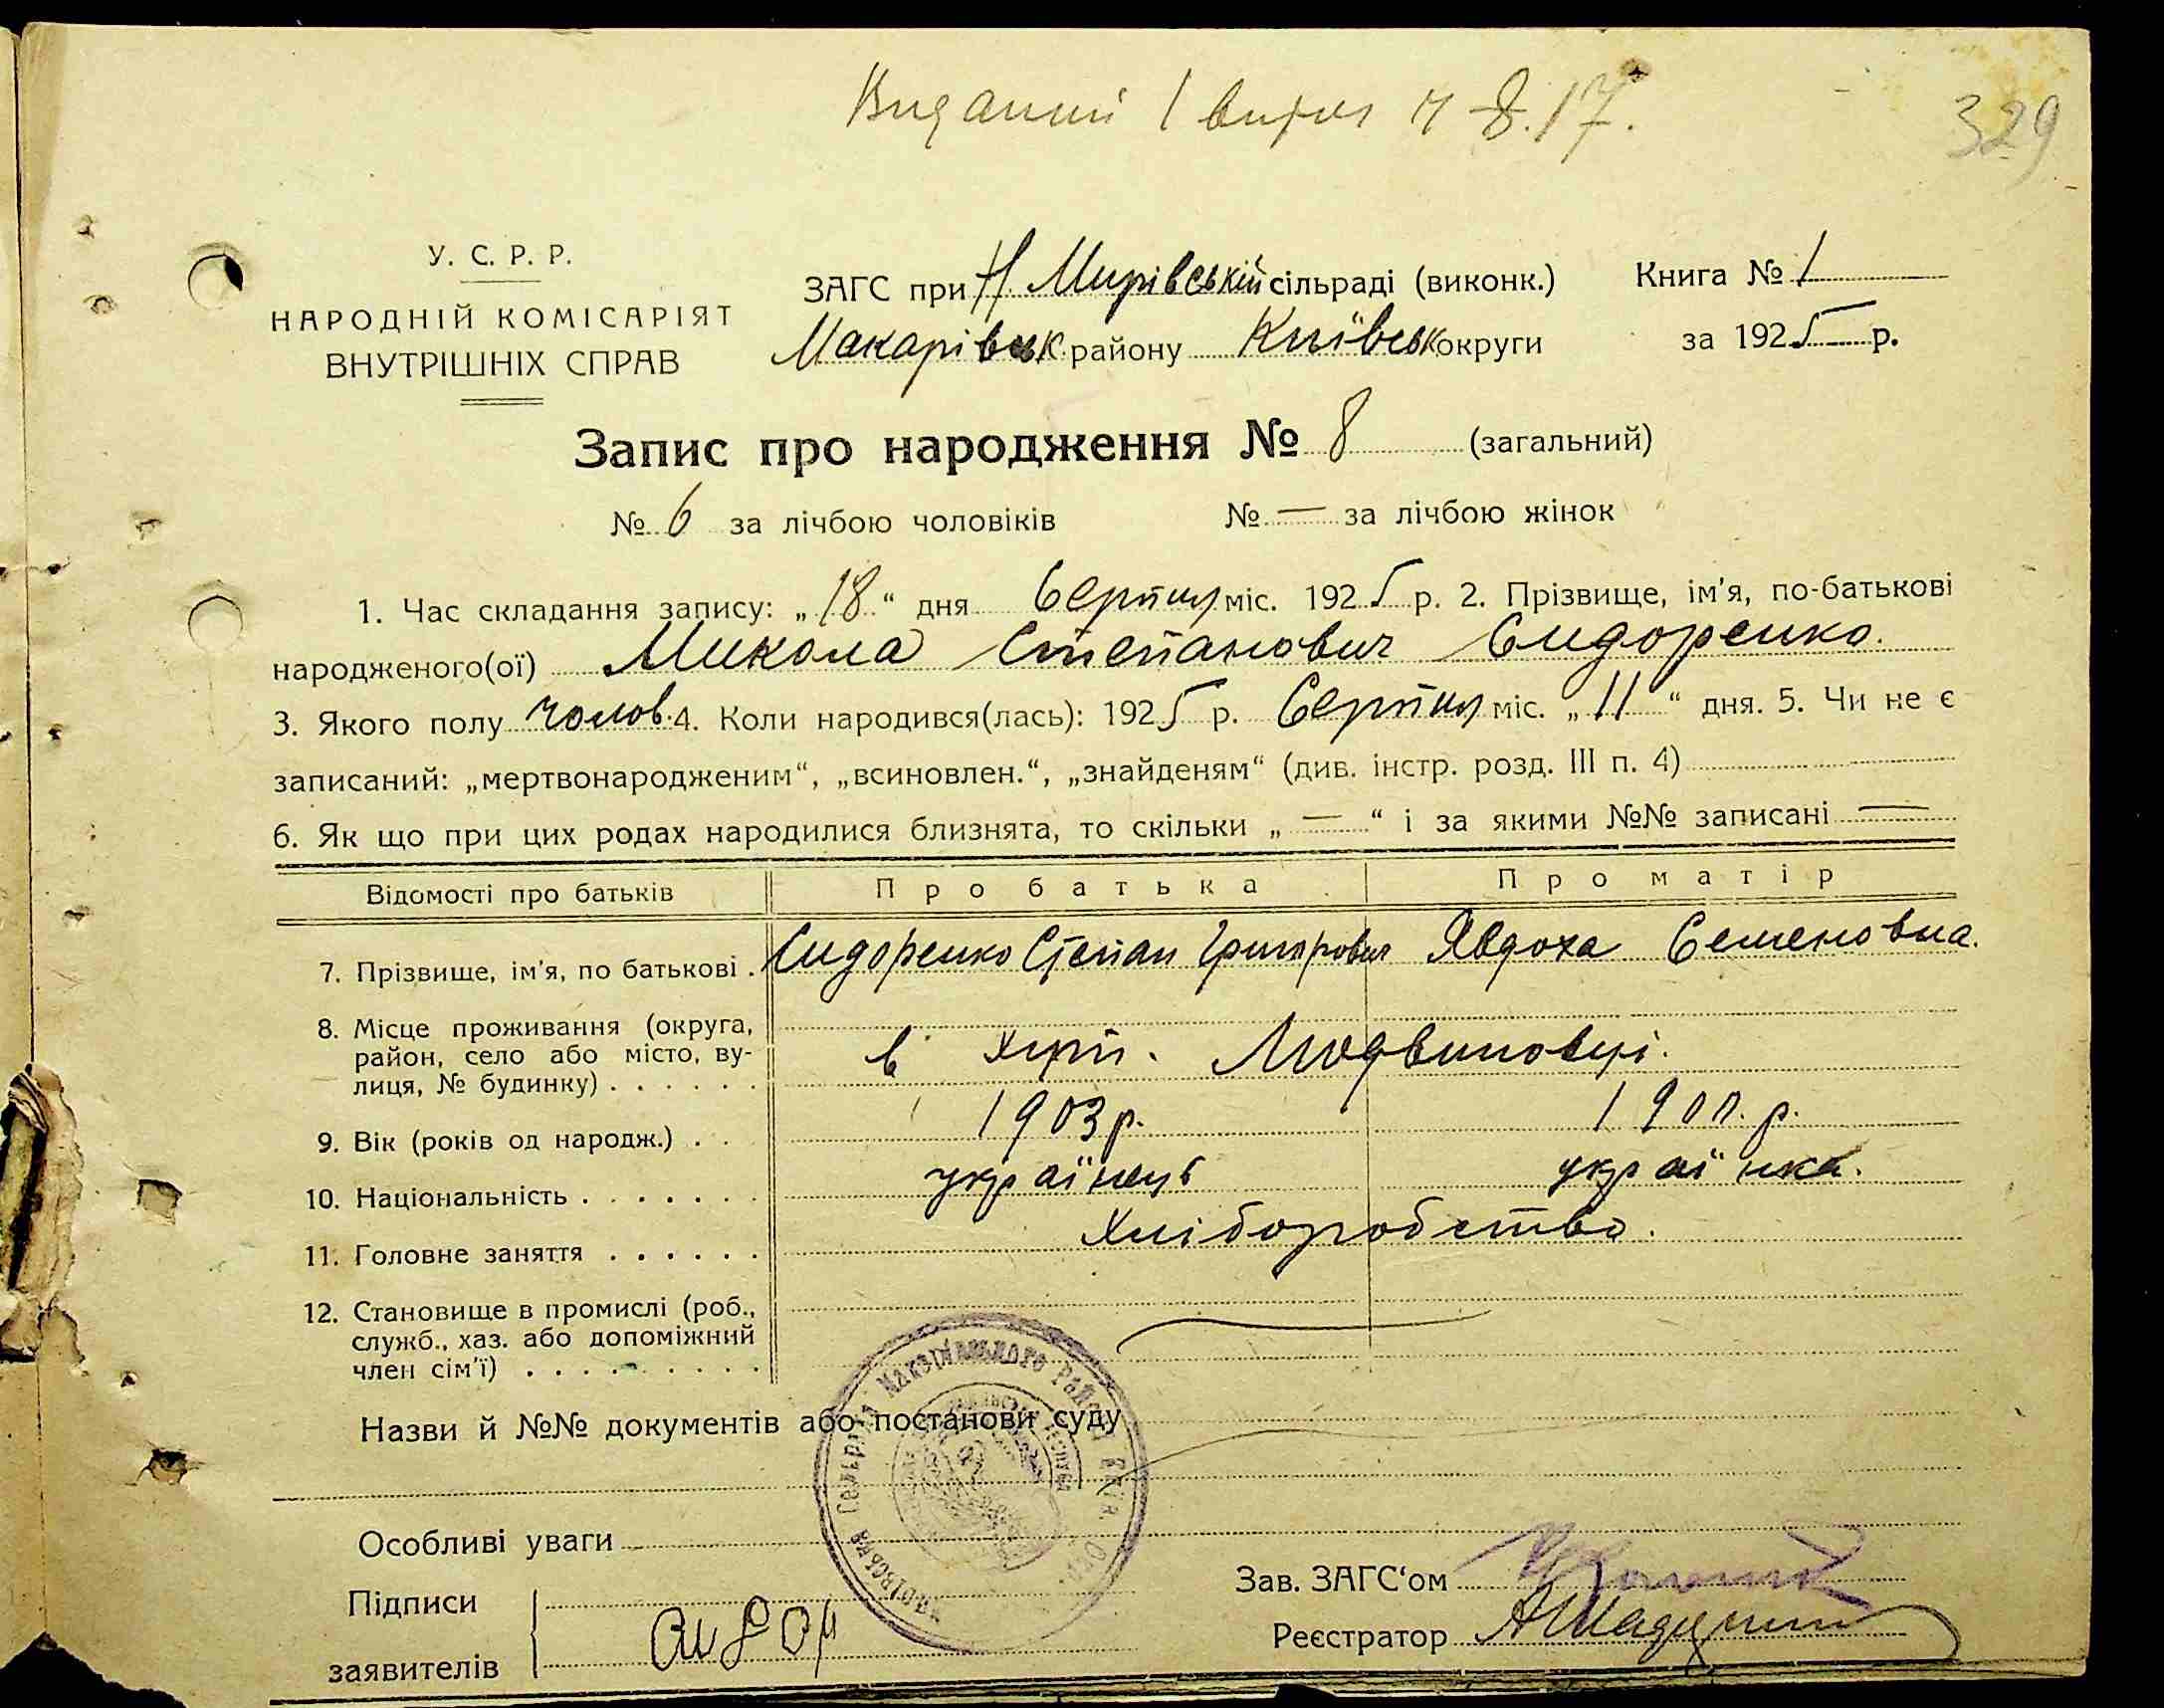 Виданий 1 витяг
329
У. С. Р. Р.
НАРОДНІЙ КОМІСАРІЯТ
ВНУТРІШНІХ СПРАВ
ЗАГС при Н Мирівській сільраді (виконк.)
Макарівськ. району Київськ округи
Книга № 1
за 1925 р.
Запис про народження № 8 (загальний)
№ 6 за лічбою чоловіків № — за лічбою жінок
1. Час складання запису: „18“ дня Серпня міс. 1925 р. 2. Прізвище, ім'я, по-батькові
народженого(ої) Микола Степанович Сидоренко.
3. Якого полу чолов. 4. Коли народився(лась): 1925 р. Серпня міс. „11“ дня. 5. Чи не є
записаний: „мертвонародженим“, „всиновлен.“, „знайденям“ (див. інстр. розд. III п. 4)
6. Як що при цих родах народилися близнята, то скільки „—“ і за якими №№ записані —
Відомості про батьків Про батька Про матір
7. Прізвище, ім'я, по батькові . Сидоренко Степан Григорович Явдоха Семеновна.
8. Місце проживання (округа,
район, село або місто, ву-
лиця, № будинку) . . . . . . в хут. Людвиновці.
9. Вік (років од народж.) . . 1903 р. 190 р.
10. Національність . . . . . . . українець українка.
11. Головне заняття . . . . . . Хліборобство.
12. Становище в промислі (роб.,
служб., хаз. або допоміжний
член сім'ї) . . . . . . . . .
Назви й №№ документів або постанови суду
Особливі уваги
Підписи
заявителів
Зав. ЗАГС'ом
Реєстратор